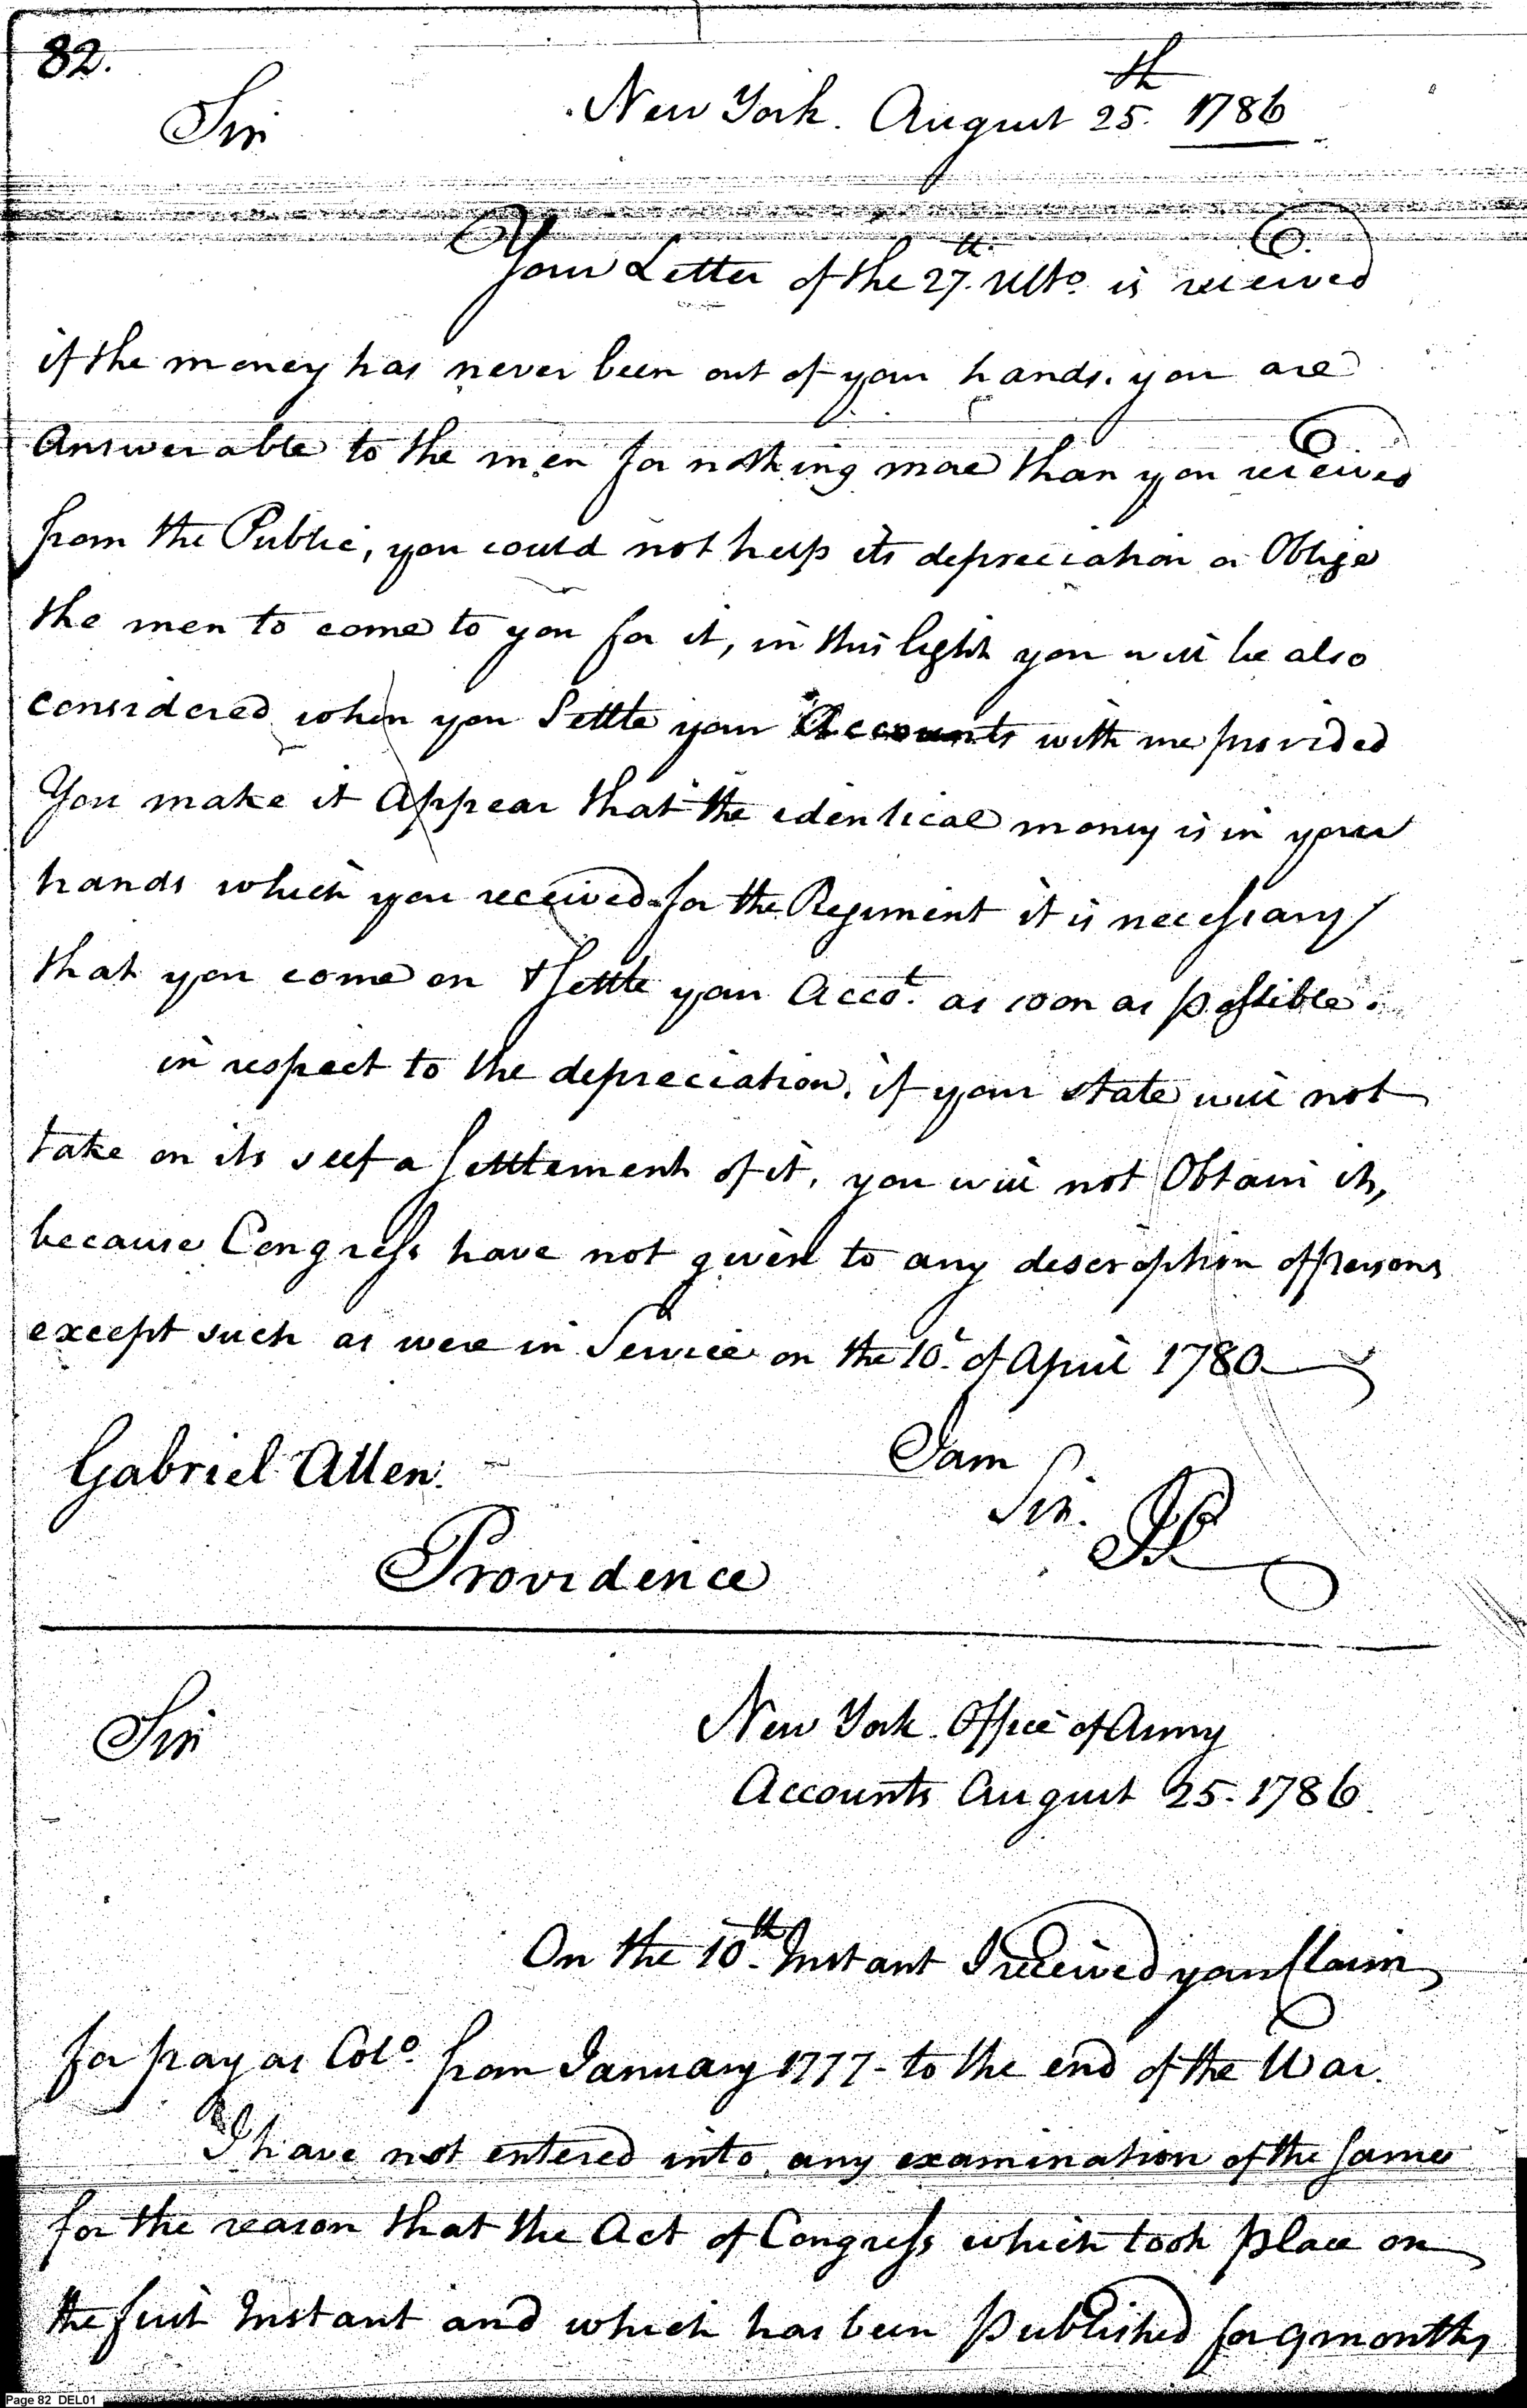 82.
Sir
New York. August 25th. 1786
Your Letter of the 27th. Ulto. is received
if the money has never been out of your hands. you are
Answerable to the men for nothing more than you received
from the Public, you could not help its depreciation or Oblige
the men to come to you for it, in this light you will be also
considered when you Settle your Accounts with me provided
You make it Appear that the identical money is in your
hands which you received for the Regiment it is necessary
that you come on & settle your Accot. as soon as possible.
in respect to the depreciation. if your state will not
take on its self a settlement of it, you will not Obtain it,
because Congress have not given to any description of persons
except such as were in Service on the 10th. of April 1780
Gabriel Allen.
I am
Sir.
Providence
Sir
New York Office of Army
Accounts August 25. 1786
On the 10th. Instant I received your Claim
for pay as Colo. from January 1777 - to the end of the War.
I have not entered into any examination of the same
for the reason that the Act of Congress which took place on
the first Instant and which has been Published for 9 months
Page 82 DEL01